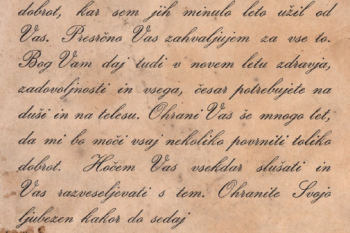 dobrot, kar sem jih minulo leto užil od
Vas. Presrčno Vas zahvaljujem za vse to.
Bog Vam daj tudi v novem letu zdravja,
zadovoljnosti in vsega, česar potrebujete na
duši in na telesu. Ohrani Vas še mnogo let,
da mi bo moči vsaj nekoliko povrniti toliko
dobrot. Hočem Vas vsekdar slušati in
Vas razveseljevati s tem. Ohranite Svojo
ljubezen kakor do sedaj